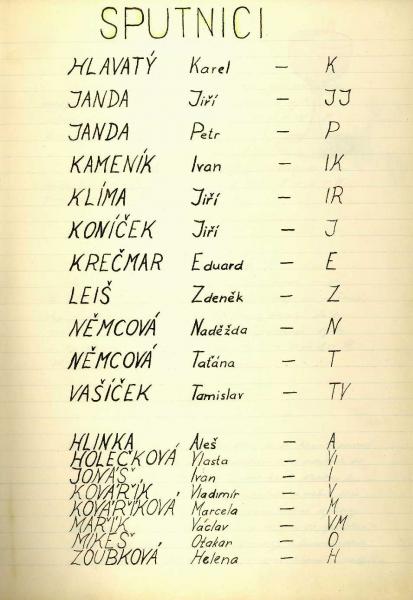 SPUTNICI
HLAVATÝ Karel – K
JANDA Jiří – JJ
JANDA Petr – P
KAMENÍK Ivan – IK
KLÍMA Jiří – IR
KONÍČEK Jiří – J
KREČMAR Eduard – E
LEIŠ Zdeněk – Z
NĚMCOVÁ Naděžda – N
NĚMCOVÁ Taťána – T
VAŠÍČEK Tamislav – TV
HLINKA Aleš – A
HOLEČKOVÁ Vlasta – VI
JONÁŠ Ivan – I
KOVAŘÍK Vladimír – V
KOVAŘÍKOVÁ Marcela – M
MAŘÍK Václav – VM
MIKEŠ Otakar – O
ZOUBKOVÁ Helena – H